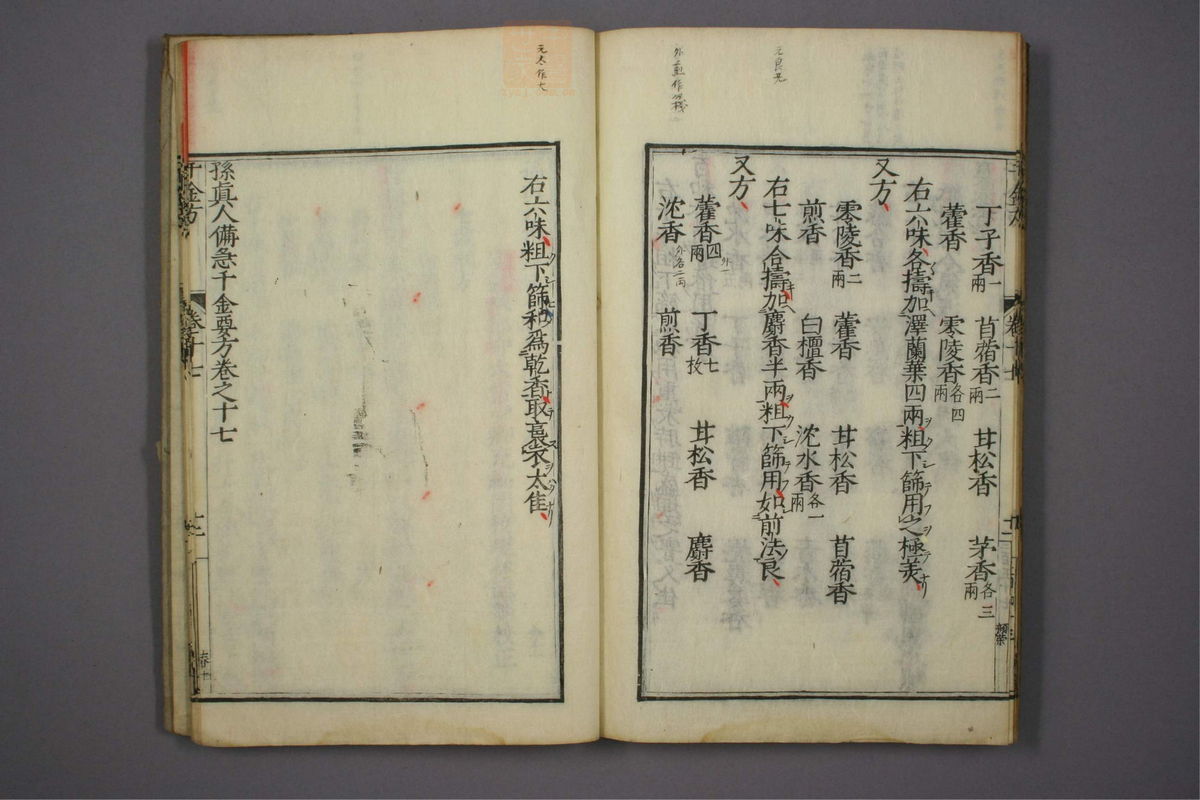 元良无
外二煎作㦮
丁子香一兩　苜蓿香二兩　甘松香　茅香各三兩
藿香　零陵香各四兩
右六味各擣加澤蘭葉四兩粗下篩用之極美
又方
零陵香二兩　藿香　甘松香　苜蓿香
煎香　白檀香　沈水香各一兩
右七味合擣加麝香半兩粗下篩用如前法良
又方
藿香四兩　丁香七枚　甘松香　麝香
外一
沈香　煎香
外各二兩
元太作大
右六味粗下篩和爲乾香取裛衣大佳
孫眞人備急千金要方卷之十七
千金方
卷十七